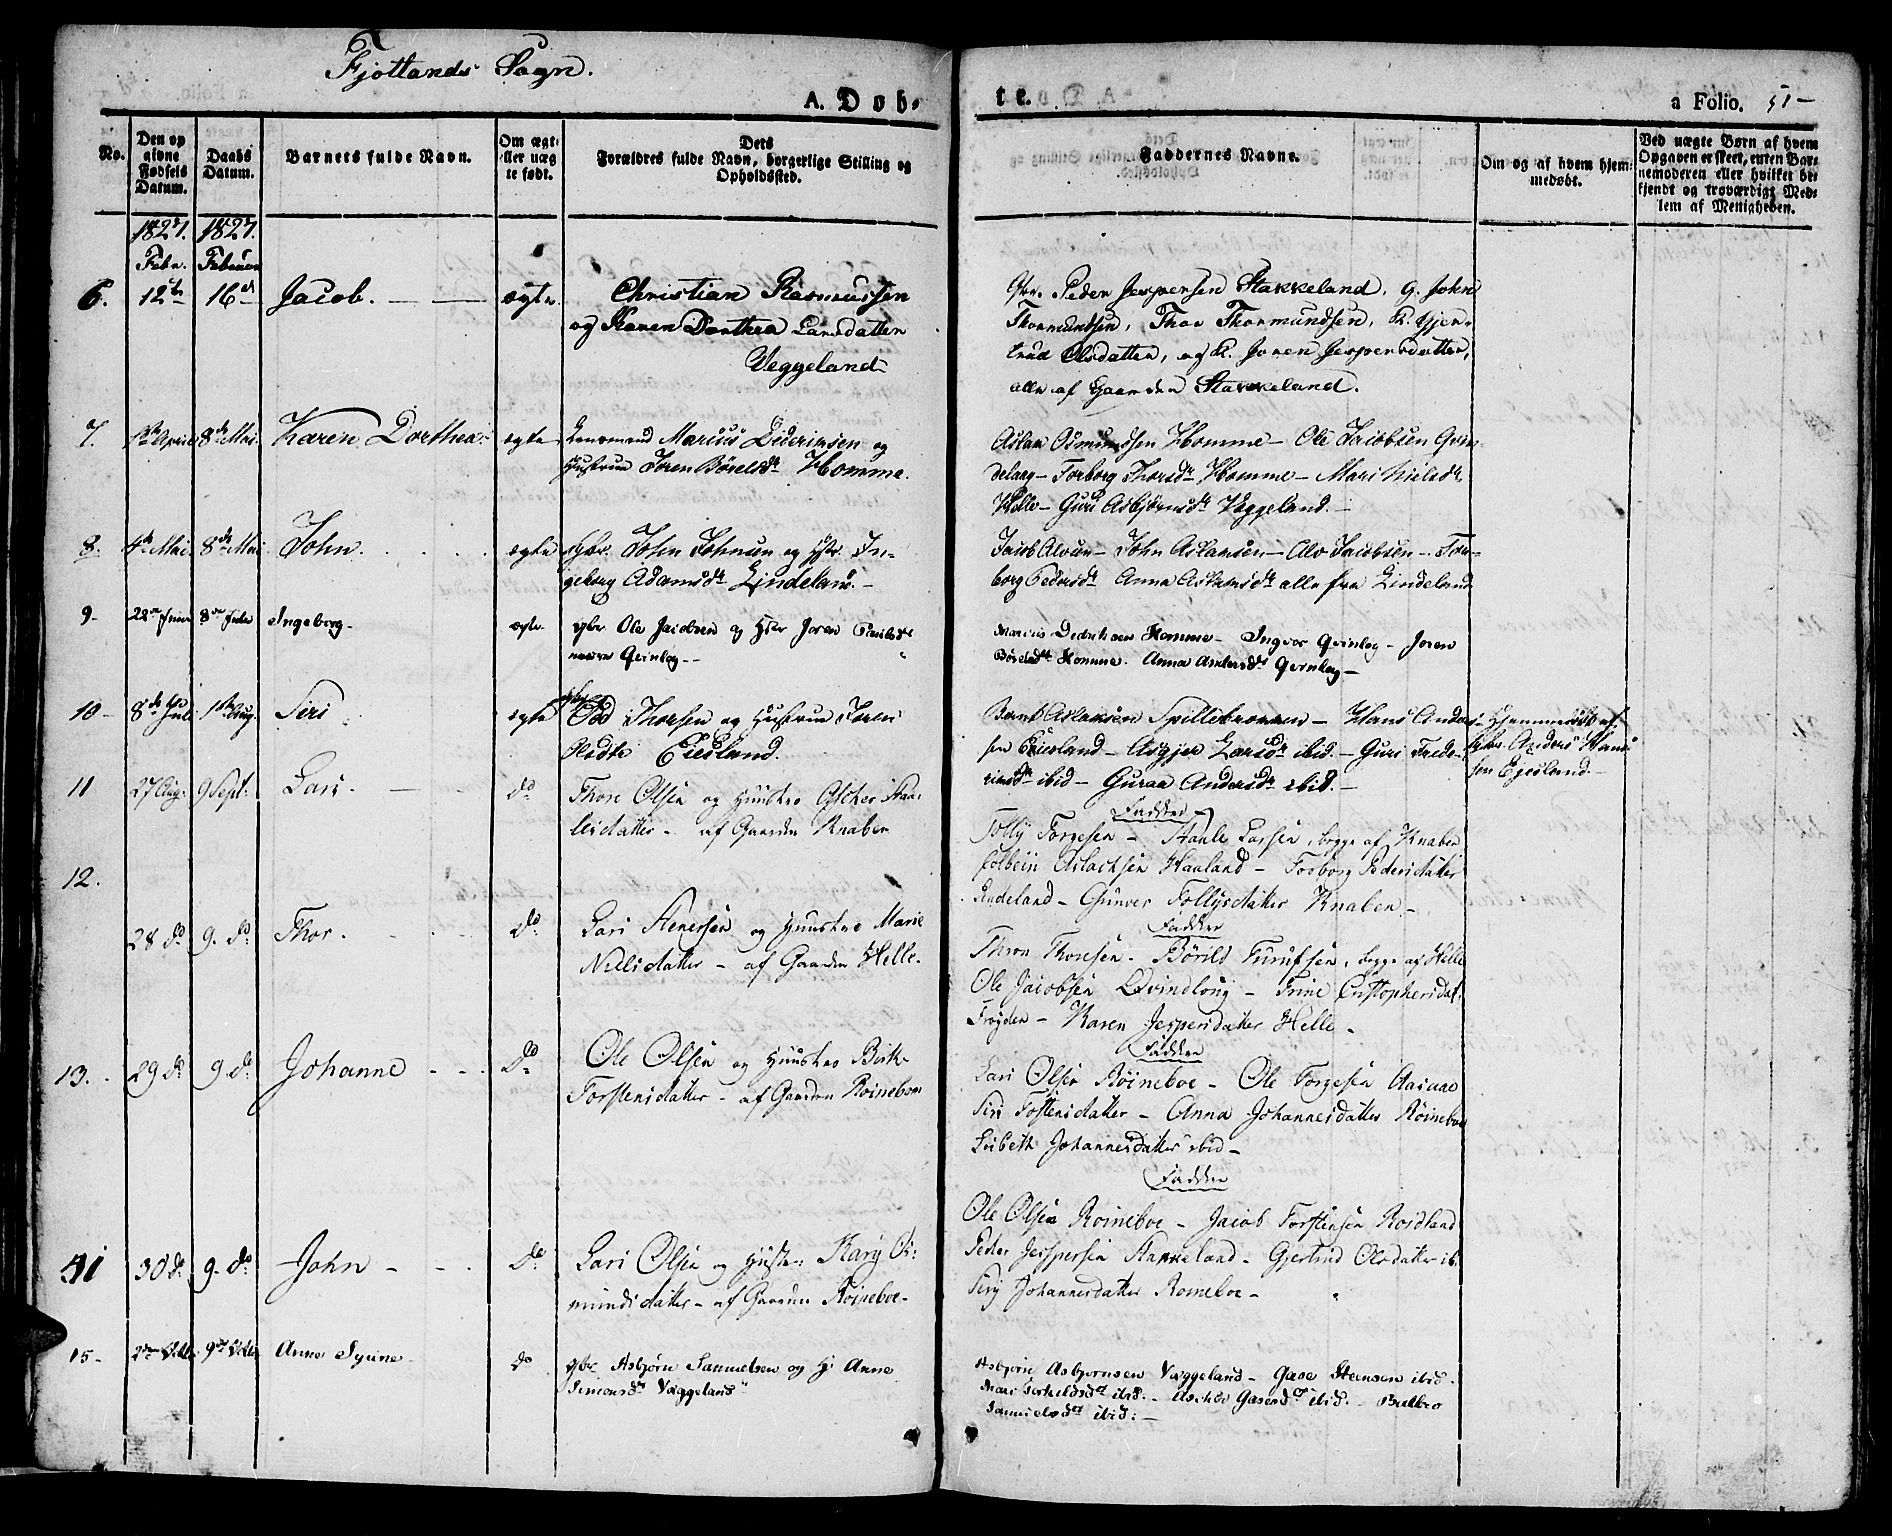 Fjotlands Sogn.
A. Døb-
te.
a Folio. 51-
No.
Den opgivne Fødsels Datum.
Daabs Datum.
Barnets fulde Navn.
Om ægte eller uægte født.
Dets
Forældres fulde Navn, borgerlige Stilling og
Opholdssted.
Faddernes Navne.
Om og af hvem hjemmedøbt.
Ved uægte Børn af hvem
Opgaven er skeet, enten Bar-
nemoderen eller hvilket be-
kjendt og troværdigt Med-
lem af Menigheden.
1827. 1827.
Febr. Februar
6. 12te 16de Jacob. — — ægte. Christian Rasmussen
og Karen Dorthea Larsdatter
Veggeland
Gbr. Peder Jespersen Stakkeland, G. John
Thormundsen, Thor Thormundsen, P. Gjer-
trud Olsdatter, og P. Joren Jespersdatter,
alle af Gaarden Stakkeland.
7. 1ste April 8de Mai. Karen Dorthea- ægte Lensmand Marcus Didriksen og
Hustrue Joren Børelsdt Homme.
Aslak Osmundsen Homme- Ole Jacobsen Qvin-
delaag- Torborg Thorsdtr Homme- Mari Nielsdt.
Helle- Guri Asbjørnsdt Veggeland.-
8. 4de Mai 8de Mai John. ægte gbr. John Johnsen og Hstr. In-
geborg Adamsdt Lindeland.-
Jacob Alvsen- John Aslaksen- Alv Jacobsen- Tor-
borg Pedersdt Anna Aslaksdt alle fra Lindeland
9- 22de Juni 8de Julii Ingeborg- ægte. gbr Ole Jacobsen og Hstr Joren
Qvinlog--
Marcus Didriksen Homme- Ingvor Qvinlog- Joren
Børelsdt Homme. Anna Andersdt Qvinlog-
10- 8de Juli 1ste Aug. Siri ægte gbr Ped Thorsen og Hustrue Joren
Olsdtr Eiesland.
Bernt Aslaksen Spillebrokken- Hans Ander-
sen Eiesland- Asgjer Larsdtr ibid.- Guri Frede-
riksdtr ibid- Guraa Andersdtr ibid.-
Hjemmedøbt af
gbr. Anders Han-
sen Egesland.-
11 27 Aug. 9 Sept. Lars. — — do Thore Olsen og Huustro Aschier Staa-
lesdatter- af Gaarden Knaben
Faddere
Tolly Torgesen- Staale Larsen, begge af Knaben
Colbein Aslachsen Haaland- Torborg Pedersdatter
Lindeland- Gunver Tollysdatter Knaben-
12.
28 do 9. do Thor. - - do Lars Stenersen og Huustro Marie
Nielsdatter- af Gaarden Helle-
Faddere
Thron Thronsen- Børild Turufsen, begge af Helle
Ole Jacobsen Qvindloug- Trine Cristophersdat.
Frøyden- Karen Jespersdatter Helle-
13. 29 do 9. do Johanne - - do Ole Olsen og Huustro Birte
Torstensdatter- af Gaarden Roineboe
Faddere
Lars Olsen Røineboe- Ole Torgesen Aasaae
Siri Tostensdatter- Anna Johannesdatter Røineboe
Lisbeth Johannesdatter ibid-
41 30 do 9. do John - - do Lars Olsen og Hustro Kary
mundsdatter- af Gaarden Roineboe-
Faddere
Ole Olsen Roineboe- Jacob Torstensen Rosdland
Peder Jespersen Stakkeland- Gjertrud Olsdatter ib.
Siry Johannesdatter Roineboe-
15- 2den Octbr 9de Octbr Anne Syrine- do gbr. Asbjørn Samuelsen og H: Anne
Simonsdt Væggeland
Asbjørn Asbjørnsen Væggeland- Gase Stensen ibid.
Mari Torkeldsdt ibid.- Aschier Gasesdt ibid.-
Samuelsdt ibid:-